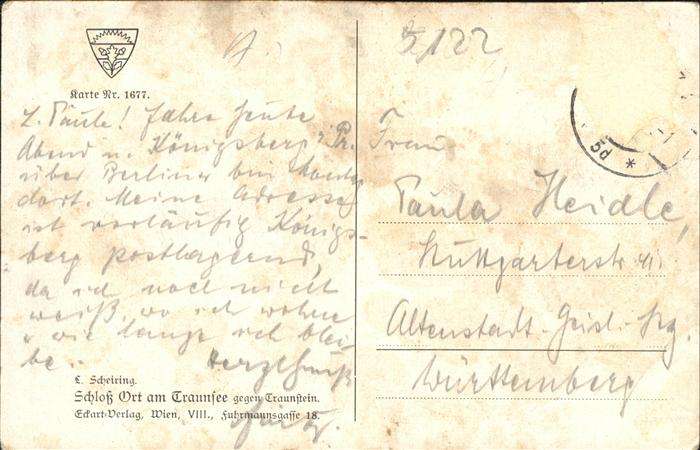 Karte Nr. 1677.
L. Paula! Fahre heute
Abend n. Königsberg i. Pr.
über Berlin
dort. Meine Adresse
ist vorläufig Königs-
berg postlagernd,
da ich noch nicht
weiß, wo ich wohne
u. wie lange ich blei
be.
L. Scheiring.
Schloß Ort am Traunsee gegen Traunstein.
Eckart-Verlag, Wien, VIII., Fuhrmannsgasse 18.
5/122
5d *
Frau
Paula Heidle,
Stuttgarterstr. 41.
Altenstadt-Geisl.-Stg.
Württemberg